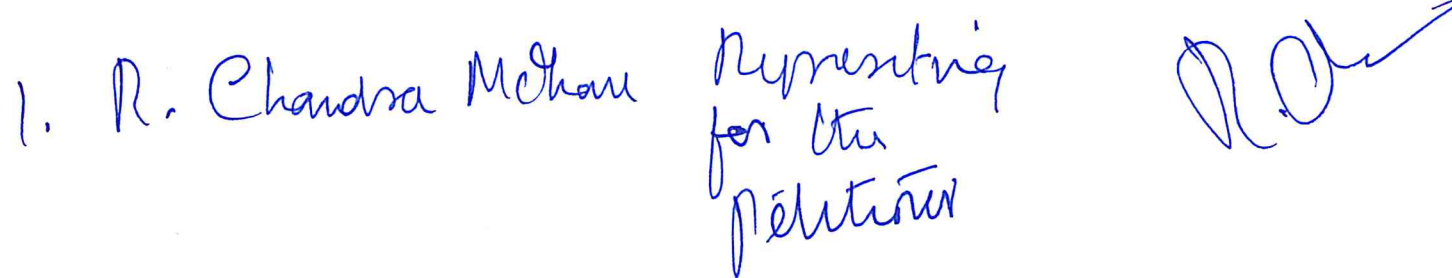 1. R. Chandra Mohan Representing
for the
petitioner